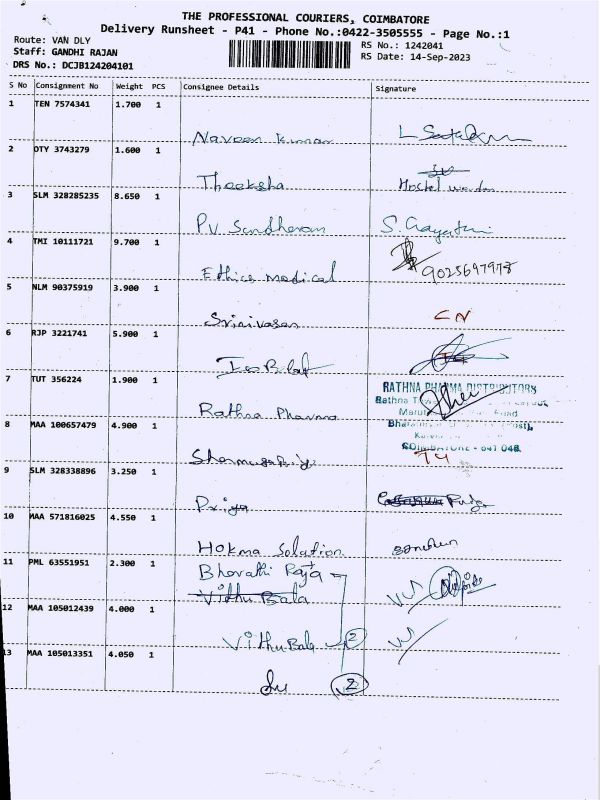 THE PROFESSIONAL COURIERS, COIMBATORE
Delivery Runsheet - P41 - Phone No.:0422-3505555 - Page No.:1
Route: VAN DLY
RS No.: 1242041
Staff: GANDHI RAJAN
RS Date: 14-Sep-2023
DRS No.: DCJB124204101
S No Consignment No Weight PCS Consignee Details Signature
1 TEN 7574341 1.700 1
Naveen Kumar
2 OTY 3743279 1.600 1
Theeksha Hostel warden
3 SLM 328285235 8.650 1
PV Sundharam S. Gayathri
4 TMI 10111721 9.700 1
Ethics medical 9025697978
5 NLM 90375919 3.900 1
Srinivasan CN
6 RJP 3221741 5.900 1
7 TUT 356224 1.900 1
RATHNA PHARMA DISTRIBUTORS
Rathna
Rathna Pharma
8 MAA 100657479 4.900 1
COIMBATORE - 641 046
9 SLM 328338896 3.250 1
Priya
10 MAA 571816025 4.550 1
Hokma Solation
11 PML 63551951 2.300 1
Bharathi Raja
Vidhu Bala
12 MAA 105012439 4.000 1
Vidhu Bala 2
13 MAA 105013351 4.050 1
2